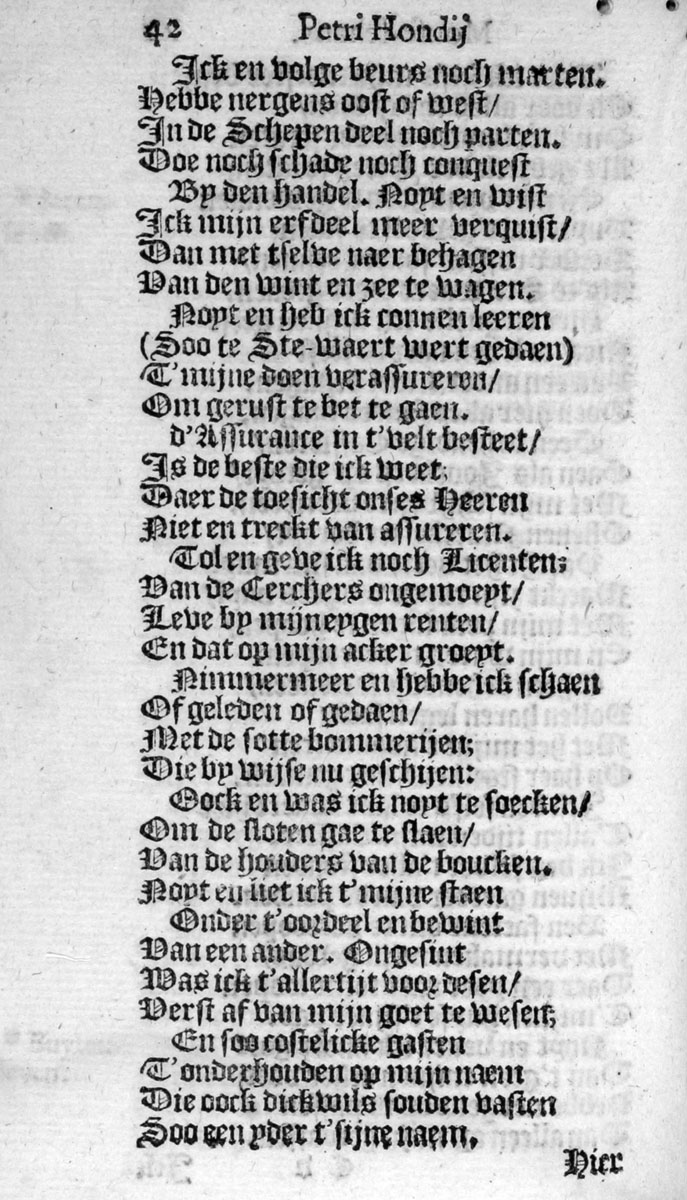 42 Petri Hondij
Ick en volge beurs noch marten.
Hebbe nergens oost of west/
In de Schepen deel noch parten.
Doe noch schade noch conquest
By den handel. Noyt en wist
Ick mijn erfdeel meer verquist/
Dan met tselve naer behagen
Van den wint en zee te wagen.
Noyt en heb ick connen leeren
(Soo te Ste-waert wert gedaen)
T'mijne doen verassureren/
Om gerust te bet te gaen.
d'Assurance in t'velt besteet/
Is de beste die ick weet;
Daer de toesicht onses Heeren
Niet en treckt van assureren.
Tol en geve ick noch Licenten;
Van de Cerchers ongemoeyt/
Leve by mijn eygen renten/
En dat op mijn acker groeyt.
Nimmermeer en hebbe ick schaen
Of geleden of gedaen/
Met de sotte bommerijen;
Die by wijse nu geschijen:
Oock en was ick noyt te soecken/
Om de sloten gae te slaen/
Van de houders van de boucken.
Noyt en liet ick t'mijne staen
Onder t'oordeel en bewint
Van een ander. Ongesint
Was ick t'allertijt voor desen/
Verst af van mijn goet te wesen;
En soo costelicke gasten
T'onderhouden op mijn naem
Die oock dickwils souden vasten
Soo een yder t'sijne naem.
Hier